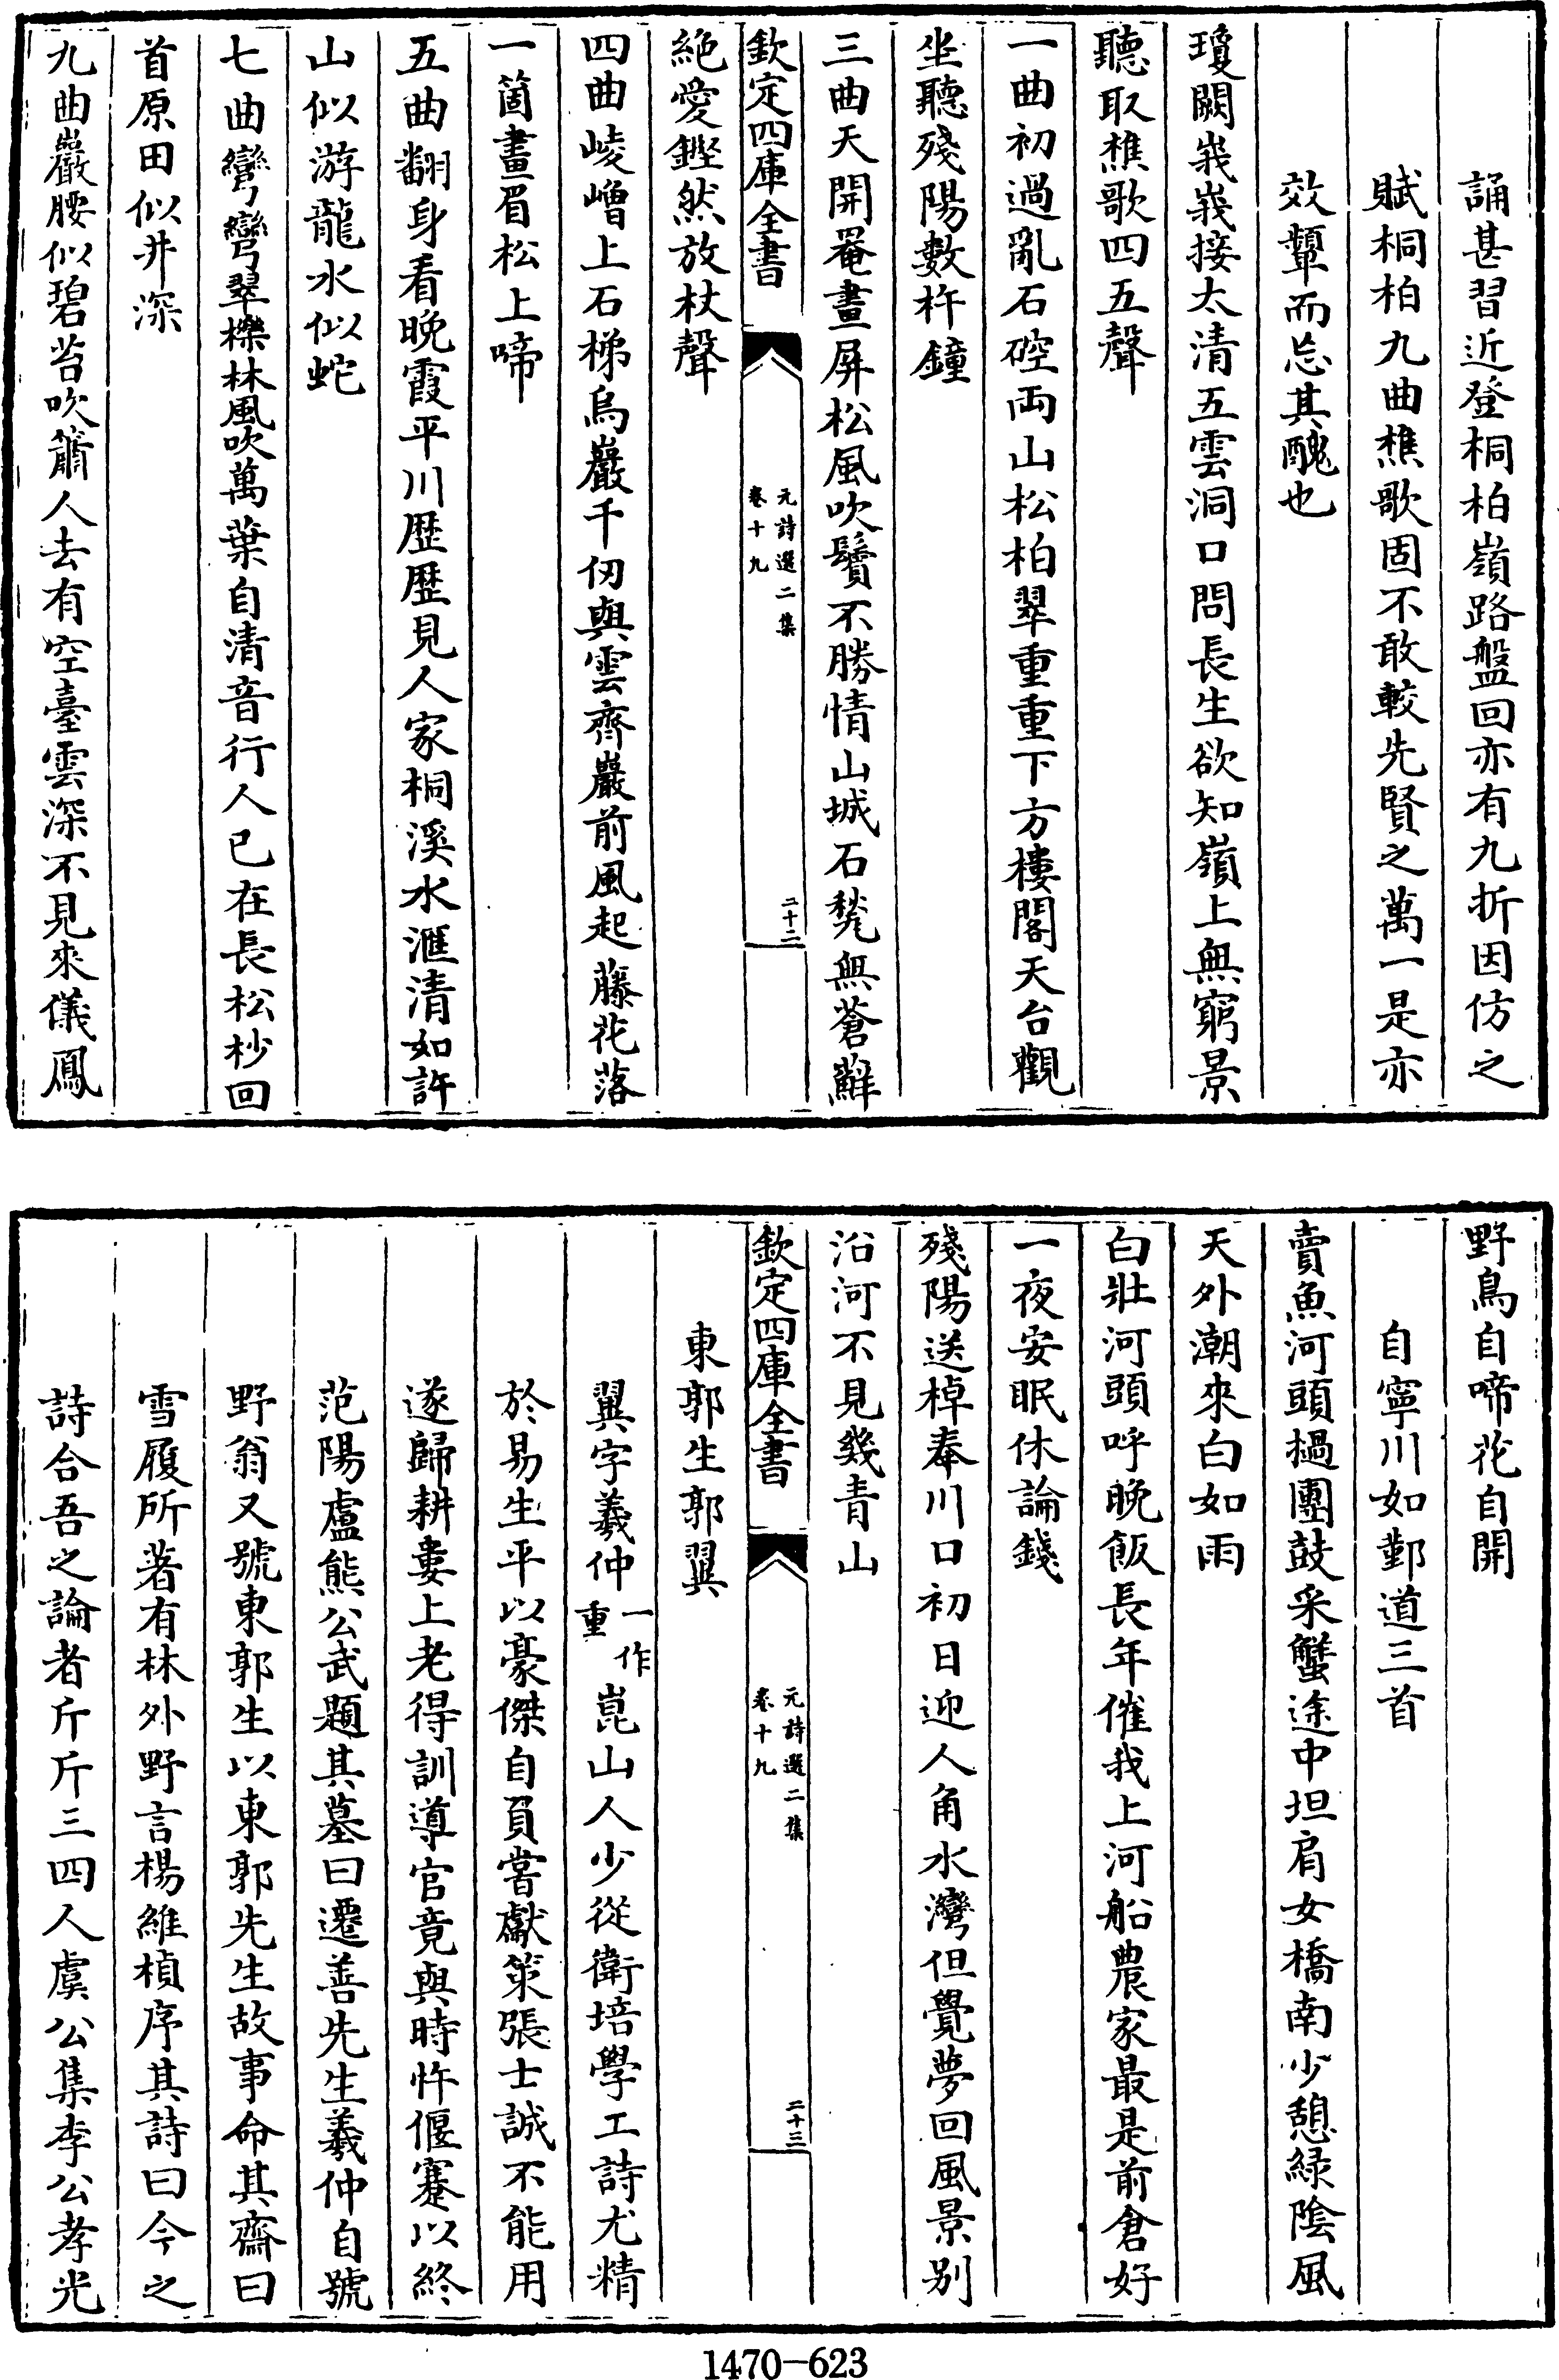 誦甚習近登桐柏嶺路盤回亦有九折因仿之
賦桐柏九曲樵歌固不敢較先賢之萬一是亦
效顰而忘其醜也
瓊闕峩峩接太清五雲洞口問長生欲知嶺上無窮景
聽取樵歌四五聲
一曲初過亂石硿両山松柏翠重重下方樓閣天台觀
坐聽殘陽數杵鐘
三曲天開罨畫屏松風吹鬢不勝情山城石凳無蒼蘚
欽定四庫全書
元詩選二集
卷十九
二十二
絶愛鏗然放杖聲
四曲崚嶒上石梯烏巖千仞與雲齊巖前風起藤花落
一箇畫眉松上啼
五曲翻身看晚霞平川歷歷見人家桐溪水滙清如許
山似游龍水似蛇
七曲彎彎翠櫟林風吹萬葉自清音行人已在長松杪回
首原田似井深
九曲巖腰似碧苔吹簫人去有空臺雲深不見來儀鳳
野鳥自啼花自開
自寧川如鄞道三首
賣魚河頭撾團鼓采蟹途中坦肩女橋南少憩緑陰風
天外潮來白如雨
白壯河頭呼晚飯長年催我上河船農家最是前倉好
一夜安眠休論錢
殘陽送棹奉川口初日迎人角水灣但覺夢回風景别
沿河不見幾青山
欽定四庫全書
元詩選二集
卷十九
二十三
東郭生郭翼
翼字羲仲一作重崑山人少從衛培學工詩尤精
於易生平以豪傑自負嘗獻策張士誠不能用
遂歸耕婁上老得訓導官竟與時忤偃蹇以終
范陽盧熊公武題其墓曰遷善先生羲仲自號
野翁又號東郭生以東郭先生故事命其齋曰
雪履所著有林外野言楊維楨序其詩曰今之
詩合吾之論者斤斤三四人虞公集李公孝光
1470-623